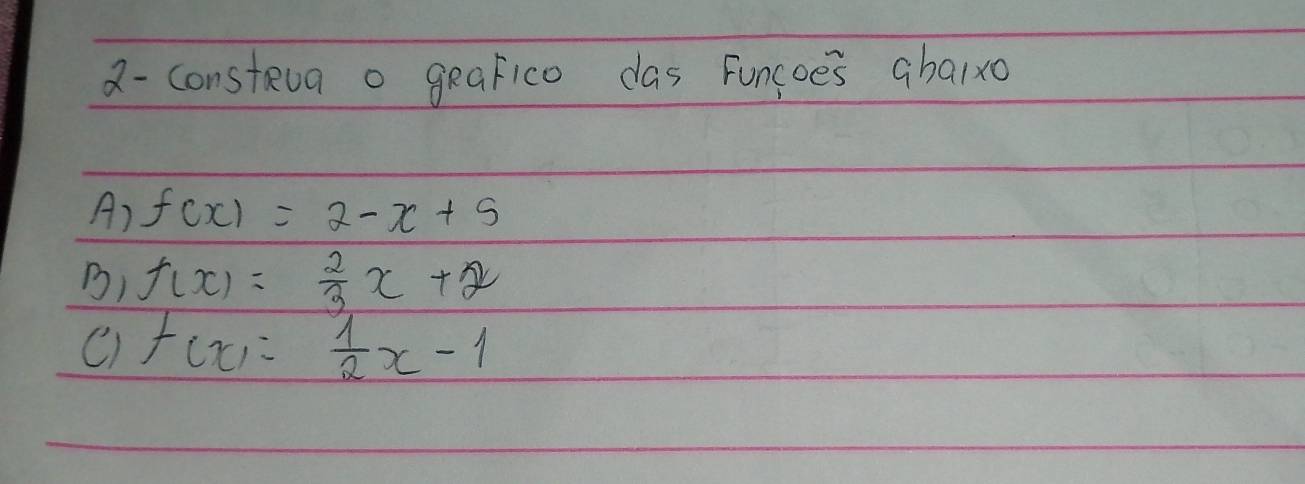 2- construa o grafico das Funçoẽs abaixo
A) f(x) = 2 - x + 5
B) f(x) = 2/3 x + 2
C) f(x) = 1/2 x - 1